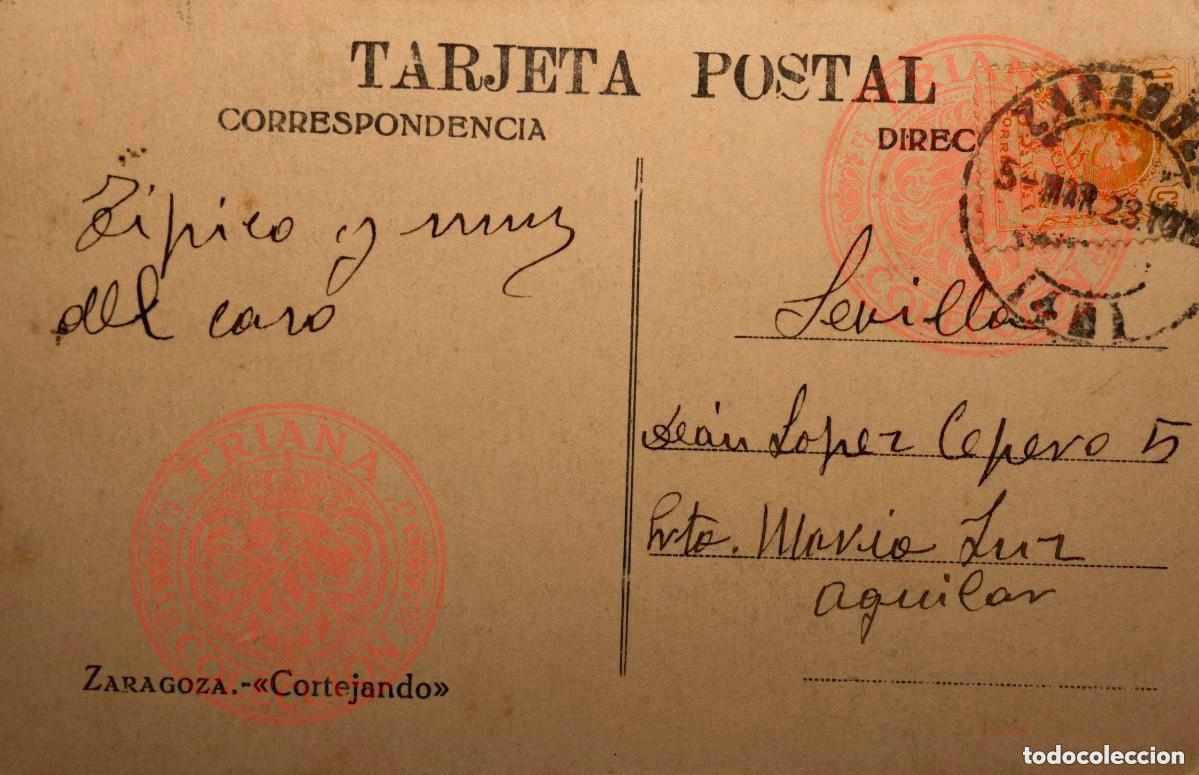 TARJETA POSTAL
CORRESPONDENCIA
DIREC
Típico y muy
del caso
Sevilla
Deán Lopez Cepero 5
Srta. Maria Luz
Aguilar
ZARAGOZA.-«Cortejando»
ZARAGOZA
5-MAR 23
TRIANA
COLECCION
TRIANA
COLECCION
CORREOS
todocoleccion